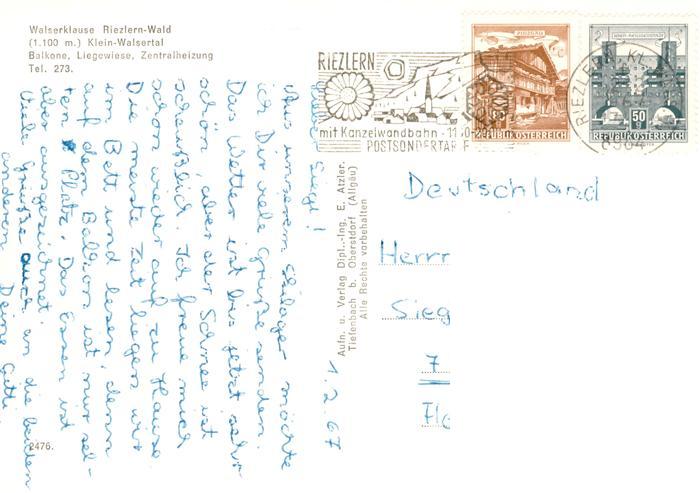 Walserklause Riezlern-Wald
(1.100 m.) Klein-Walsertal
Balkone, Liegewiese, Zentralheizung
Tel. 273.
RIEZLERN
mit Kanzelwandbahn
POSTSONDERTARIF
REPUBLIK ÖSTERREICH
50 g
REPUBLIK ÖSTERREICH
RIEZLERN
1.2.67
Sieg!
Aus unserem Skilager möchte
ich Dir viele Grüße senden.
Das Wetter ist bis jetzt sehr
schön, aber der Schnee ist
scheußlich. Ich freue mich
schon wieder auf zu Hause
Die meiste Zeit liegen wir
im Bett und lesen, denn
auf dem Balkon ist nur sel-
ten Platz. Das Essen ist
aber ausgezeichnet.
Viele Grüße auch an die beiden
anderen
Deine
Aufn. u. Verlag Dipl.-Ing. E. Atzler.
Tiefenbach b. Oberstdorf (Allgäu)
Alle Rechte vorbehalten
Deutschland
Herrn
Sieg
7
2476.